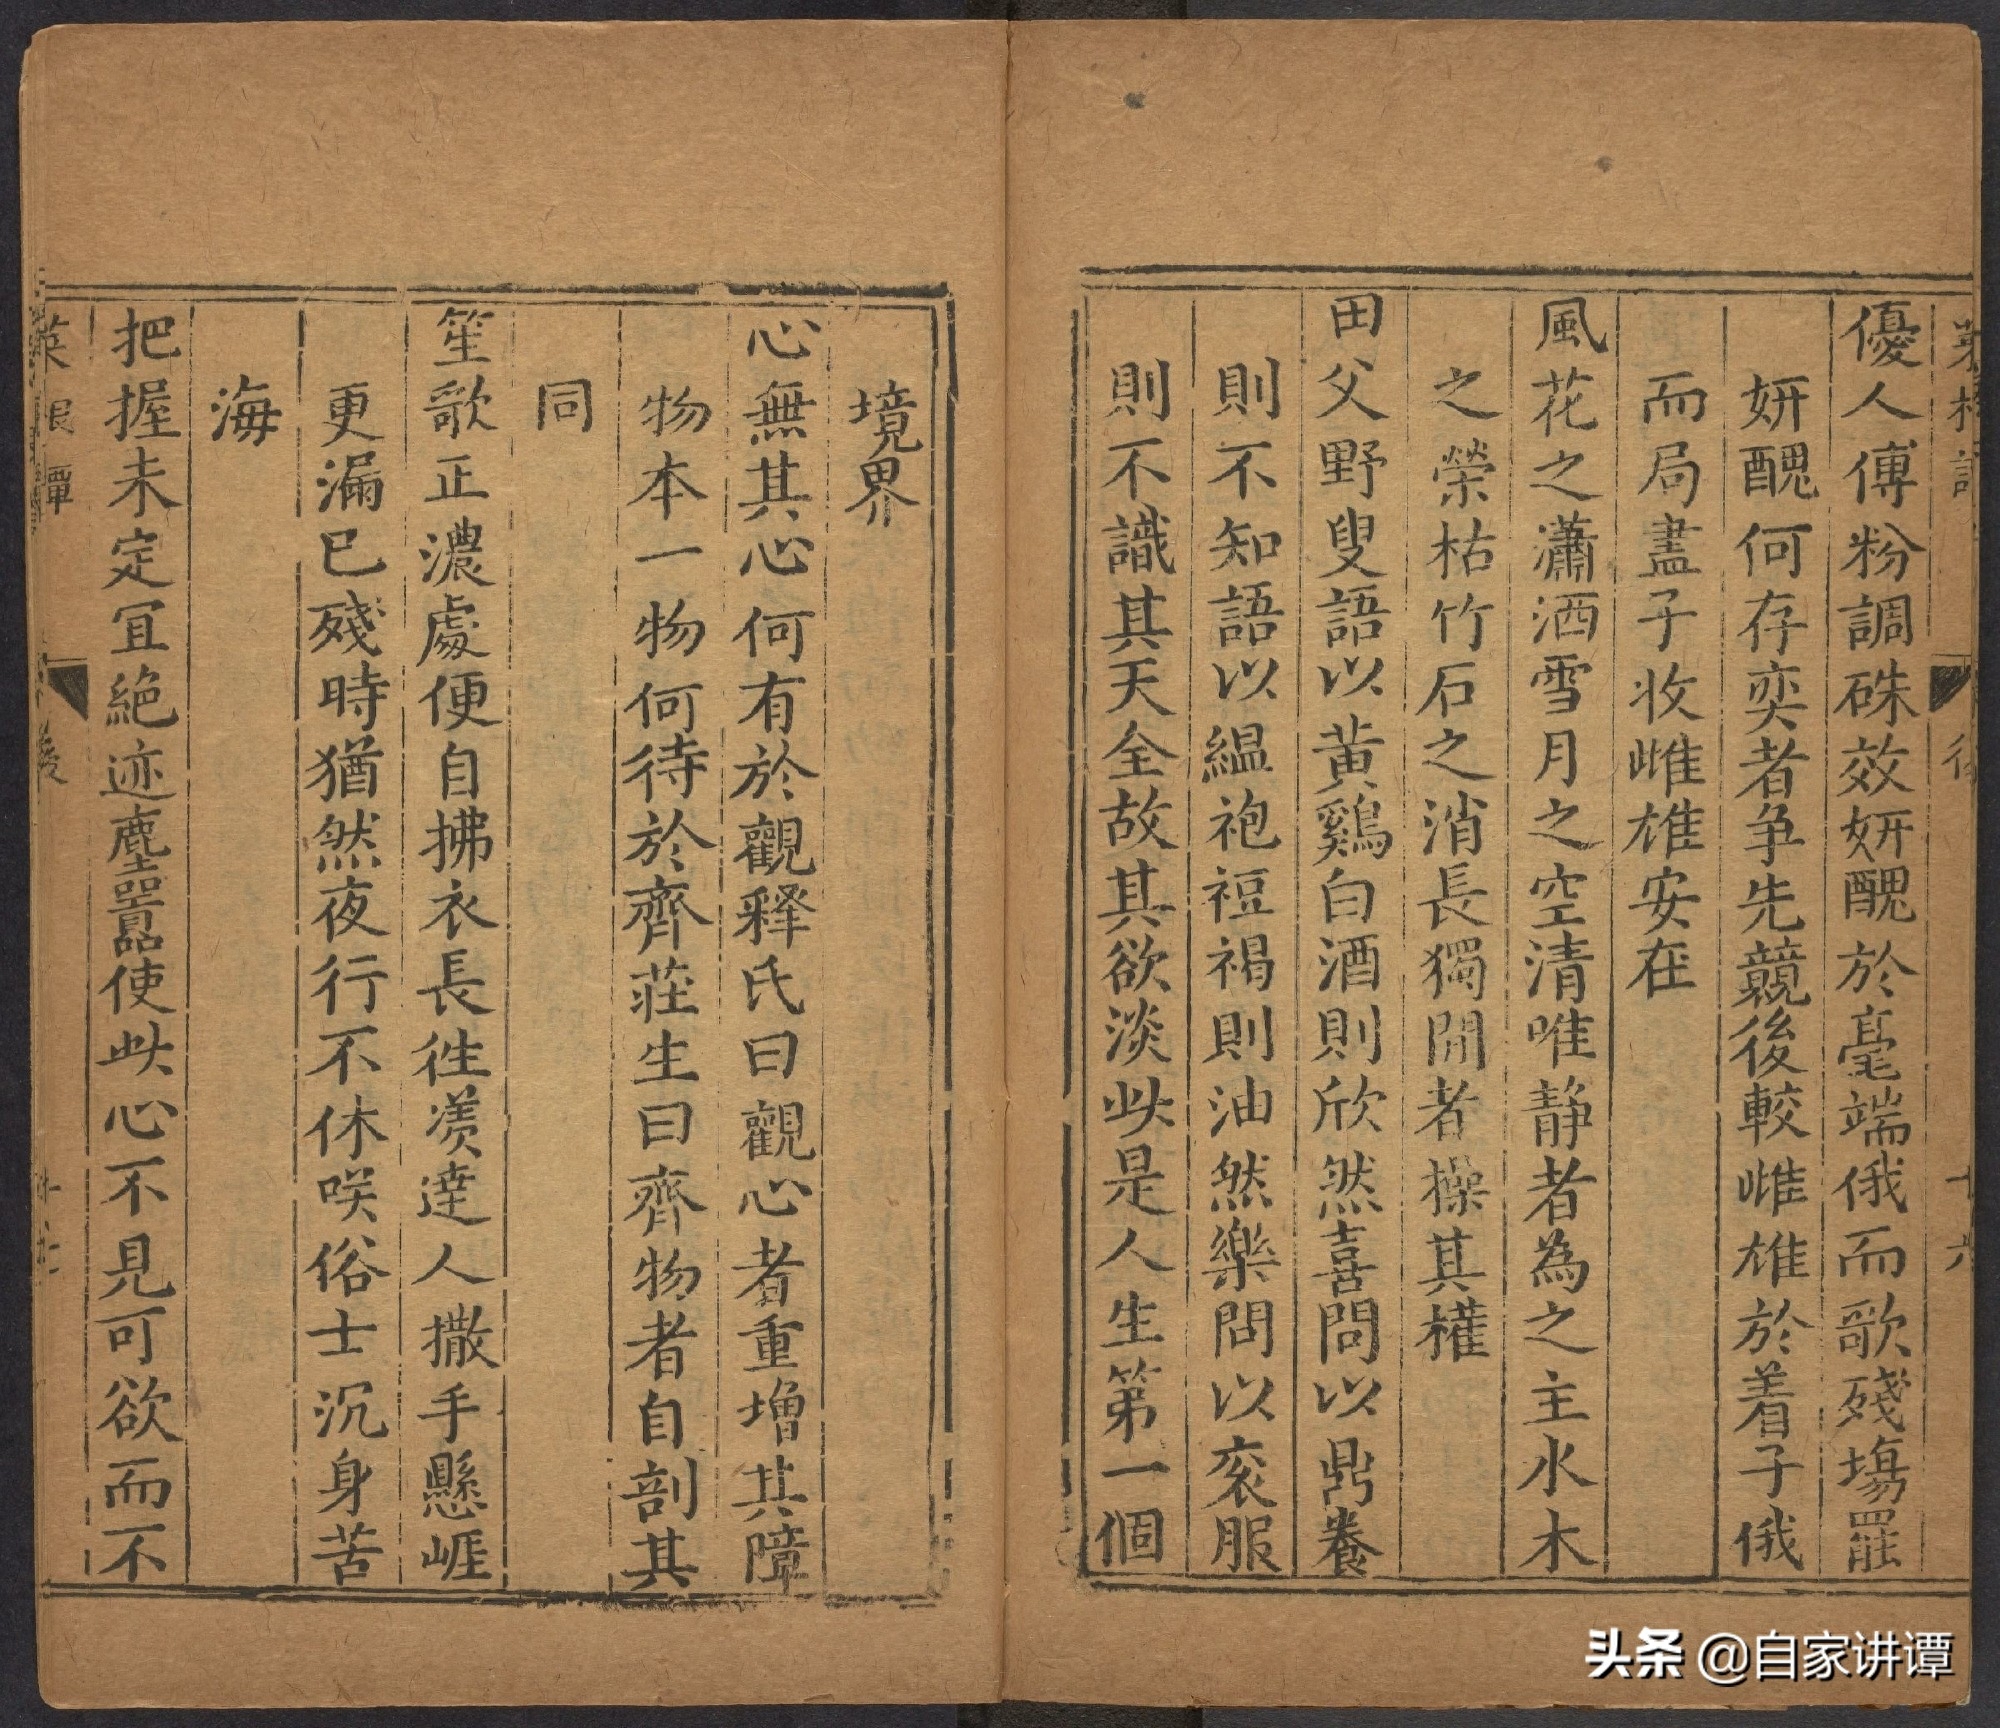 優人傅粉調硃效妍醜於毫端俄而歌殘塲罷
妍醜何存奕者争先競後較雌雄於着子俄
而局盡子收雌雄安在
風花之瀟洒雪月之空清唯静者為之主水木
之榮枯竹石之消長獨閒者操其權
田父野叟語以黄鷄白酒則欣然喜問以鼎養
則不知語以緼袍裋褐則油然樂問以衮服
則不識其天全故其欲淡此是人生第一個
境界
心無其心何有於觀释氏曰觀心者重增其障
物本一物何待於齊莊生曰齊物者自剖其
同
笙歌正濃處便自拂衣長徃羡達人撒手懸崕
更漏已殘時猶然夜行不休咲俗士沉身苦
海
把握未定冝絶迹塵囂使此心不見可欲而不
菜根譚
後
头条 @自家讲谭